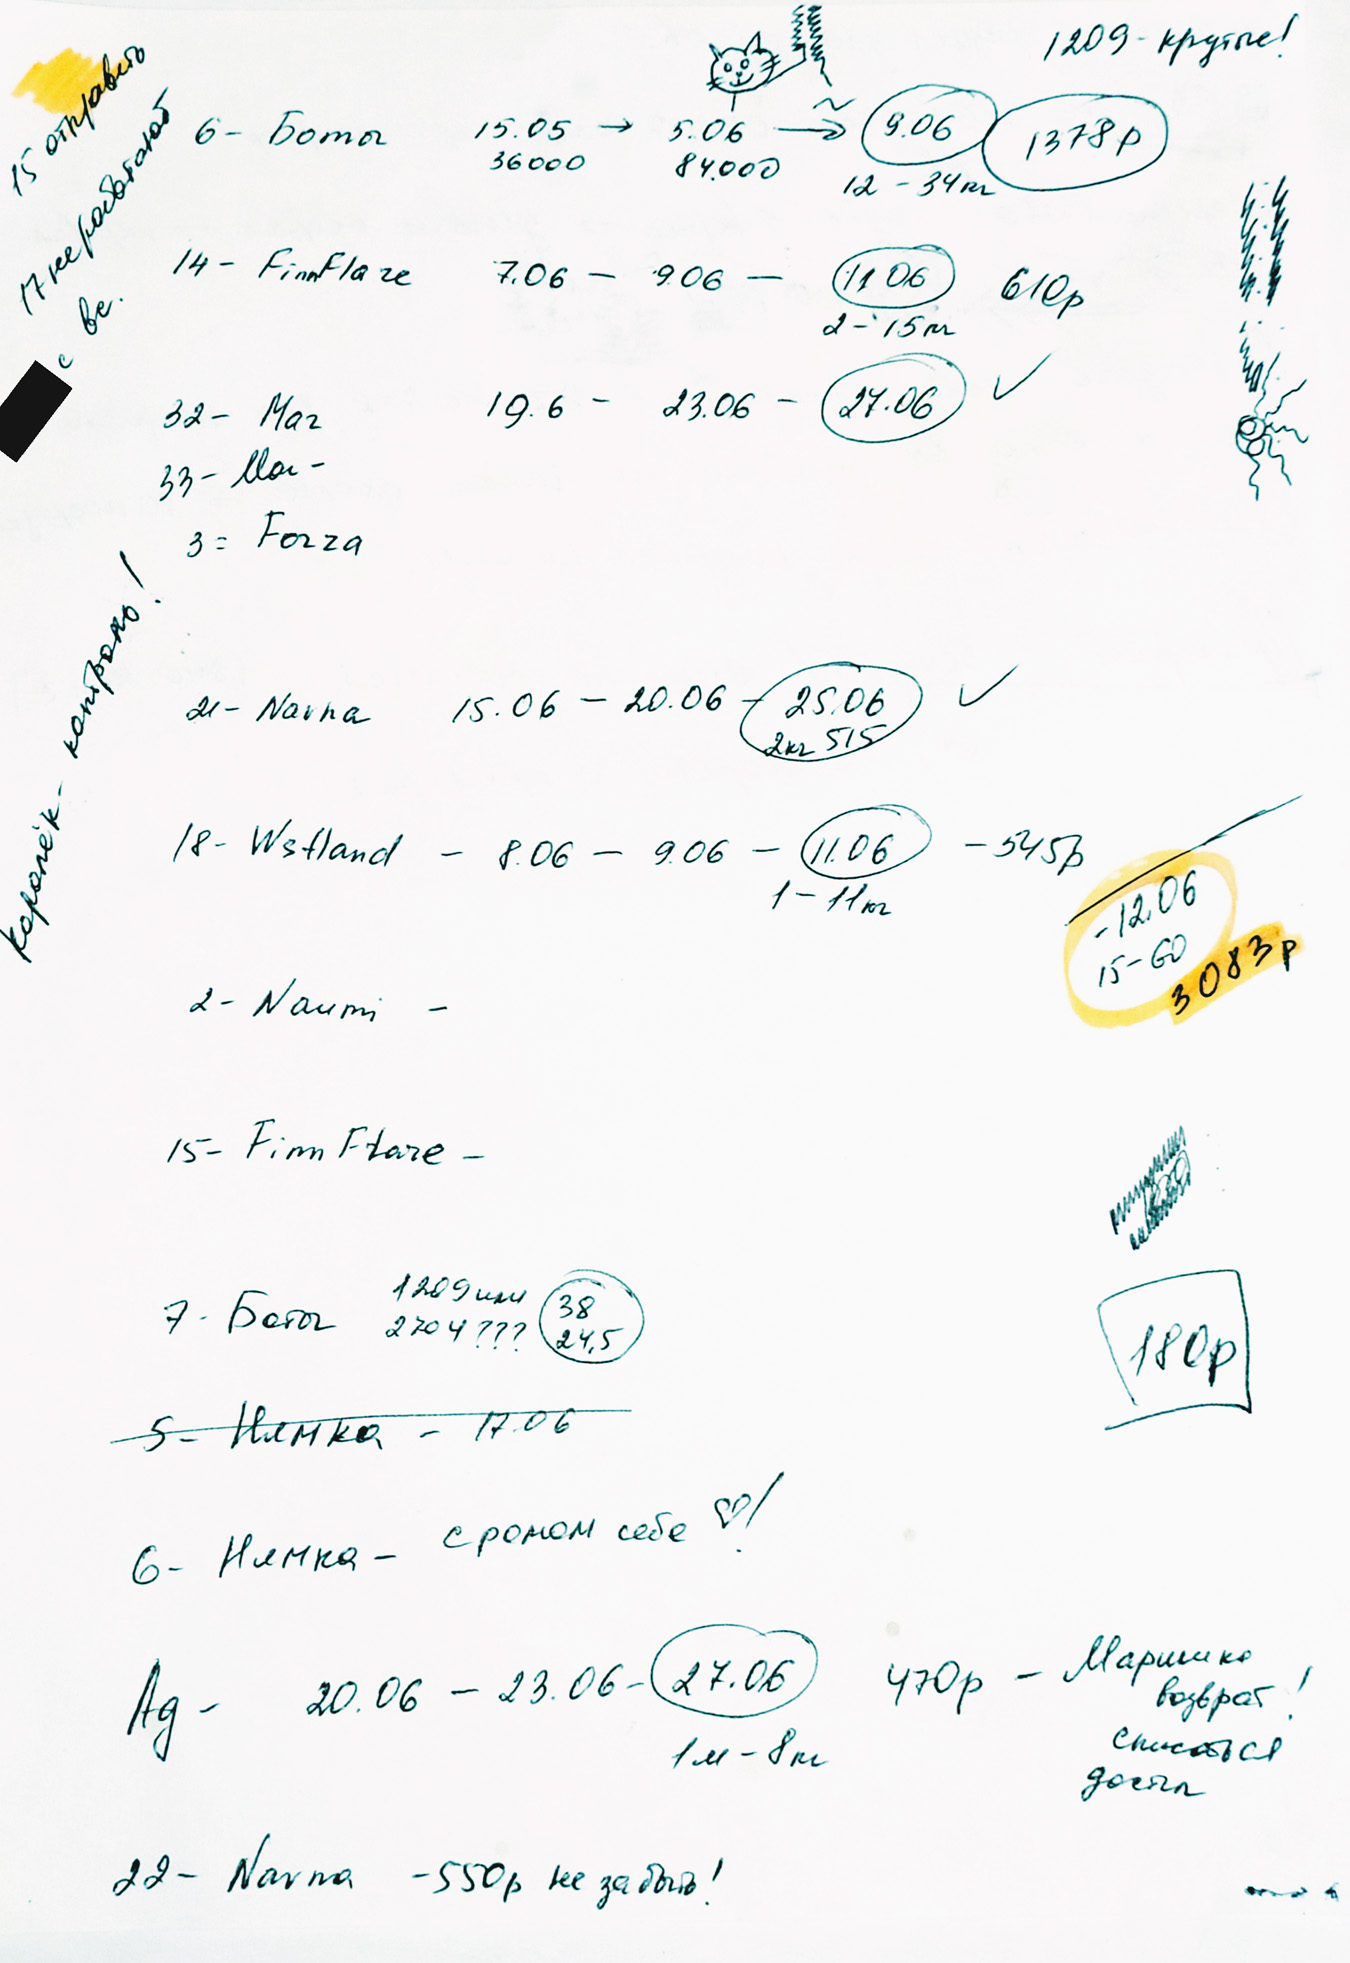 1209 - крутые!
15 отправить
17 не работают
с вс.
6 - Боты 15.05 → 5.06 → 9.06 1378р
36000 84.000 12 - 34кг
14 - FinnFlare 7.06 - 9.06 - 11.06 610р
2 - 15кг
32 - Mar 19.6 - 23.06 - 27.06 ✓
33 -
3 = Forza
- контроль!
21 - Navna 15.06 - 20.06 - 25.06 ✓
2кг 515
18 - Wstland - 8.06 - 9.06 - 11.06 - 545р
1 - 11кг
- 12.06
15 - GO
3083р
2 - Naumi -
15 - FinnFlare -
7 - Боты 1209 или 38
2704??? 24,5
180р
5 - Нямка - 17.06
6 - Нямка - с ромом себе ♡!
Ag - 20.06 - 23.06 - 27.06 470р - Маришке
возврат!
1м - 8кг списаться
22 - Navna - 550р не забыть!